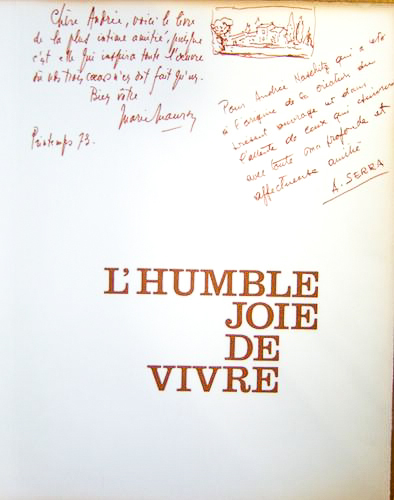 Chère Andrée, voici le livre
de la plus intime amitié, puisque
c'est elle qui inspira toute l'œuvre
où vos trois cœurs n'en font qu'un.
Bien vôtre
Marie Mauron
Printemps 73.
Pour Andrée Naschitz qui a été
à l'origine de la création du
présent ouvrage et dans
l'attente de ceux qui
avec toute ma profonde et
affectueuse amitié
A. SERRA
L'HUMBLE
JOIE
DE
VIVRE